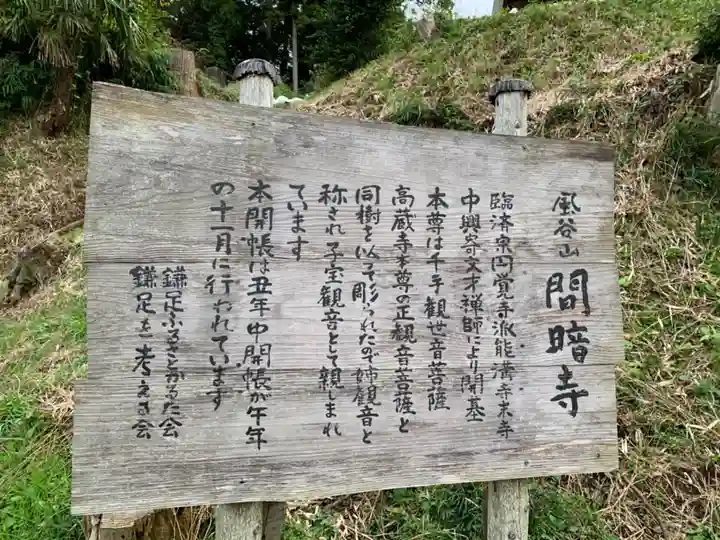 風谷山 間暗寺
臨済宗円覚寺派能満寺末寺
中興奇文才禅師により開基
本尊は千手観世音菩薩
高蔵寺本尊の正観音菩薩と
同樹を以って彫られたので姉観音と
称され子宝観音として親しまれ
ています
本開帳は丑年中開帳が午年
の十一月に行われています
鎌足ふるさとかるた会
鎌足を考える会